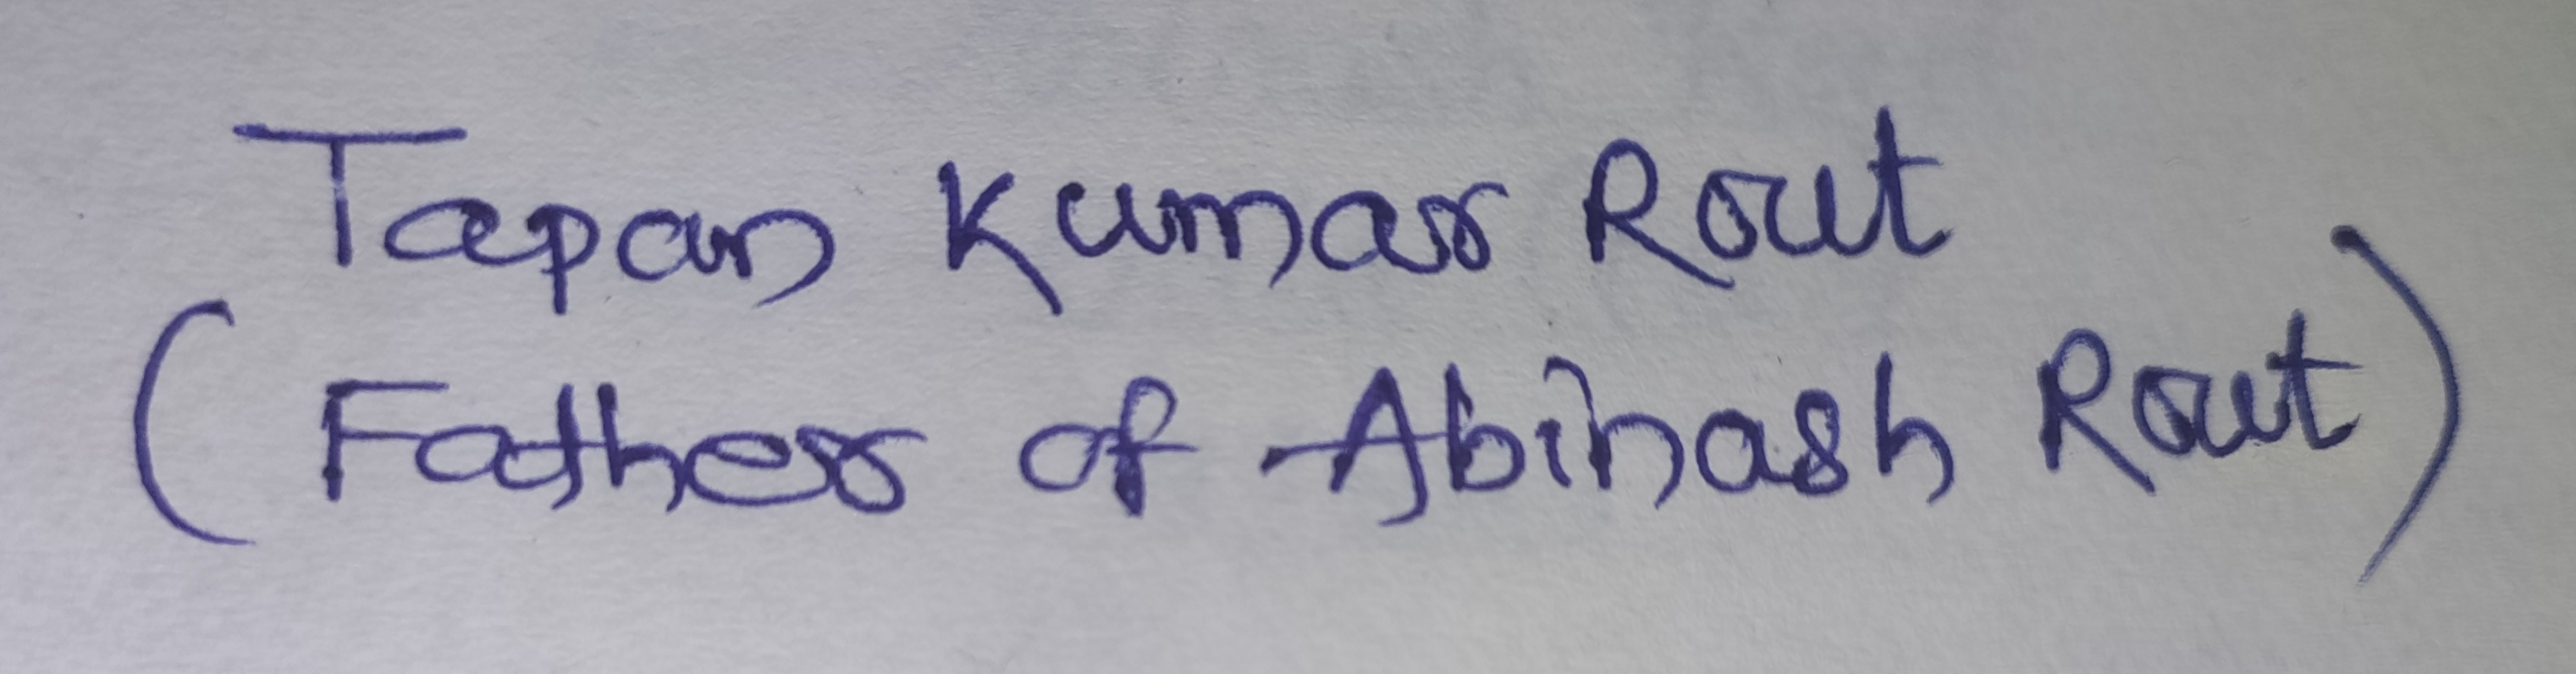 Tapan Kumar Rout
(Father of Abinash Rout)